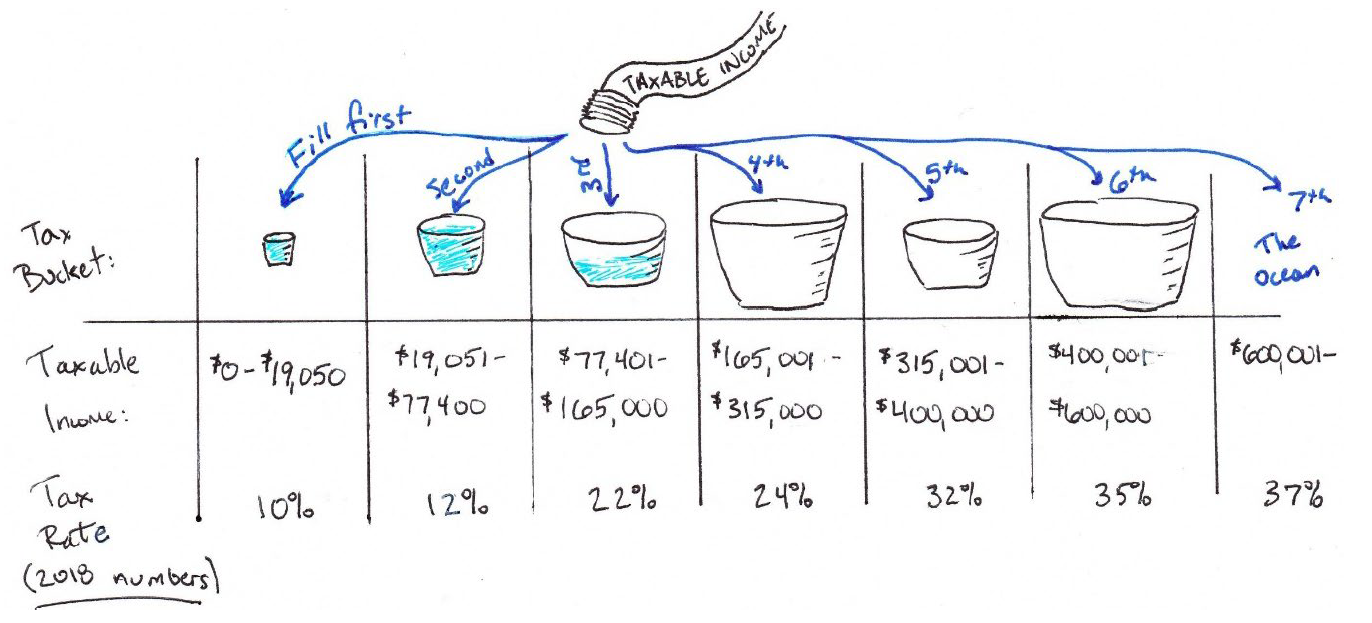 TAXABLE INCOME
Fill first
second
3rd
4th
5th
6th
7th
Tax
Bucket:
The
ocean
Taxable
Income:
$0-$19,050
$19,051-
$77,400
$77,401-
$165,000
$165,001-
$315,000
$315,001-
$400,000
$400,001-
$600,000
$600,001-
Tax
Rate
(2018 numbers)
10%
12%
22%
24%
32%
35%
37%